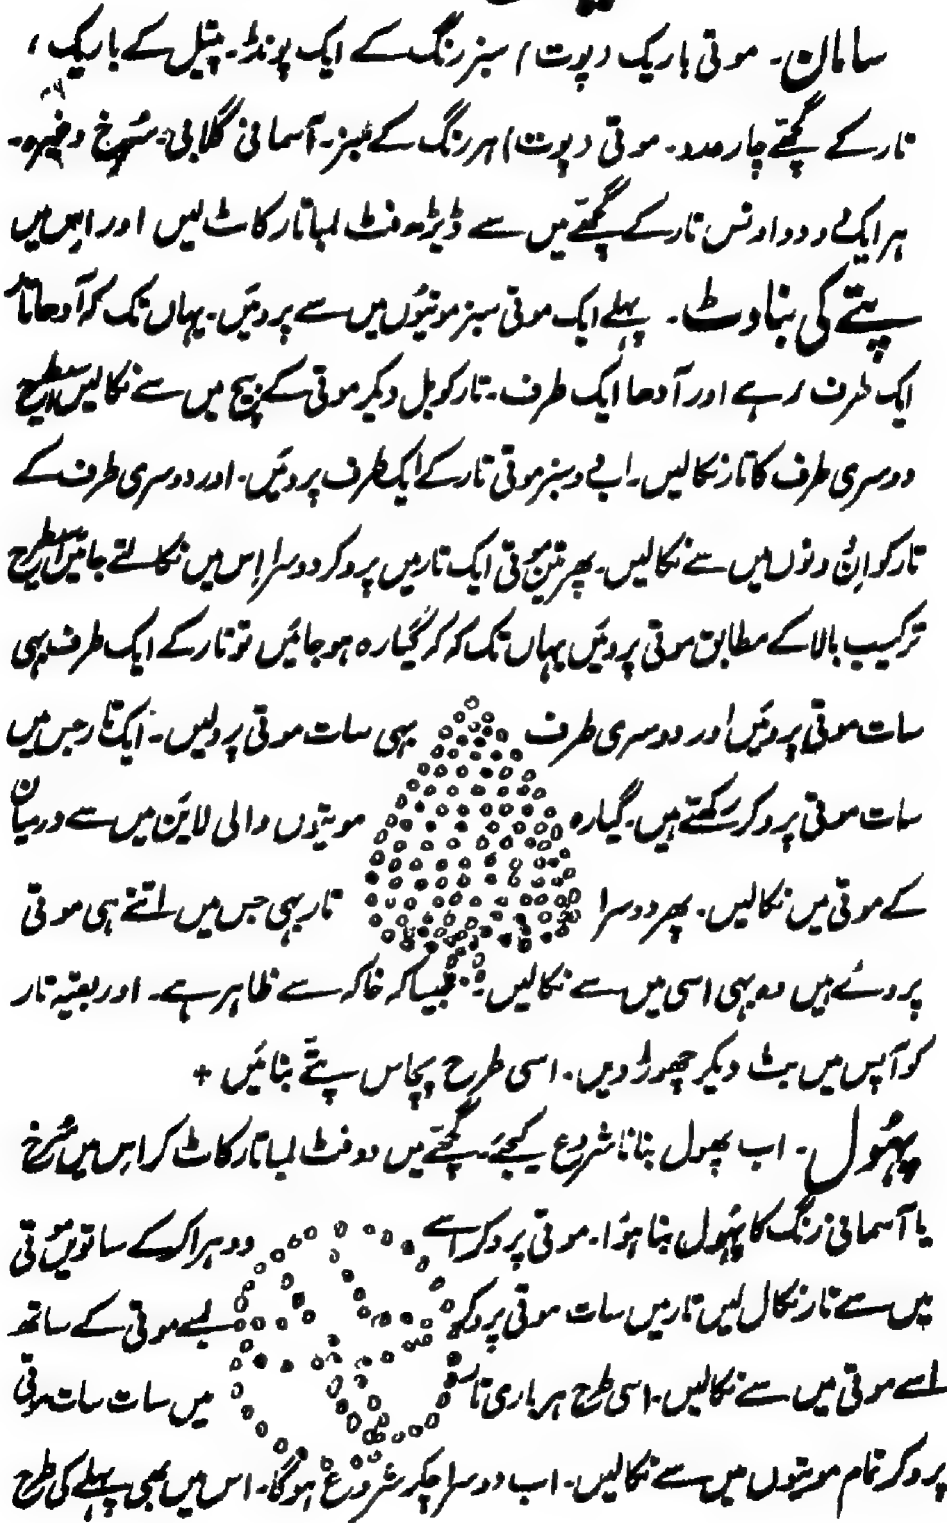 سامان۔ موتی باریک (پوت) سبز رنگ کے ایک پونڈ۔ پیتل کے باریک،
تار کے گچھے چار عدد۔ موتی (پوت) ہر رنگ کے سبز۔ آسمانی گلابی۔ سُرخ وغیرہ۔
ہر ایک دو دو اونس تار کے گچھے میں سے ڈیڑھ فٹ لمبا تار کاٹ لیں اور اس میں
پتے کی بناوٹ۔ پہلے ایک موتی سبز موتیوں میں سے پروئیں۔ یہاں تک کہ آدھا تار
ایک طرف رہے اور آدھا ایک طرف۔ تار کو بل دیکر موتی کے بیچ میں سے نکالیں اسطرح
دوسری طرف کا تار نکالیں۔ اب دو سبز موتی تار کے ایک طرف پروئیں۔ اور دوسری طرف کے
تار کو اِن دونوں میں سے نکالیں۔ پھر تین موتی ایک تار میں پرو کر دوسرا اِس میں نکالتے جائیں اسطرح
ترکیب بالا کے مطابق موتی پروئیں یہاں تک کہ گیارہ ہو جائیں تو تار کے ایک طرف بھی
سات موتی پروئیں اور دوسری طرف بھی سات موتی پرولیں۔ ایک تار جس میں
سات موتی پرو کر رکھتے ہیں۔ گیارہ موتیوں والی لاین میں سے درمیان
کے موتی میں نکالیں۔ پھر دوسرا تار بھی جس میں اتنے ہی موتی
پروئے ہیں وہ بھی اسی میں سے نکالیں۔ جیسا کہ خاکہ سے ظاہر ہے۔ اور بقیہ تار
کو آپس میں بٹ دیکر چھوڑ دیں۔ اسی طرح پچاس پتے بنائیں +
پھُول۔ اب پھول بنانا شروع کیجئے۔ گچھے میں دو فٹ لمبا تار کاٹ کر اس میں سُرخ
یا آسمانی رنگ کا پھُول بنا ہوا۔ موتی پرو کر اسے دوہرا کر کے ساتویں موتی
میں سے تار نکال لیں تار میں سات موتی پرو کر لمبے موتی کے ساتھ
اسے موتی میں سے نکالیں۔ اسی طرح ہر باری تار میں سات سات موتی
پرو کر تمام موتیوں میں سے نکالیں۔ اب دوسرا چکر شروع ہوگا۔ اس میں بھی پہلے کی طرح